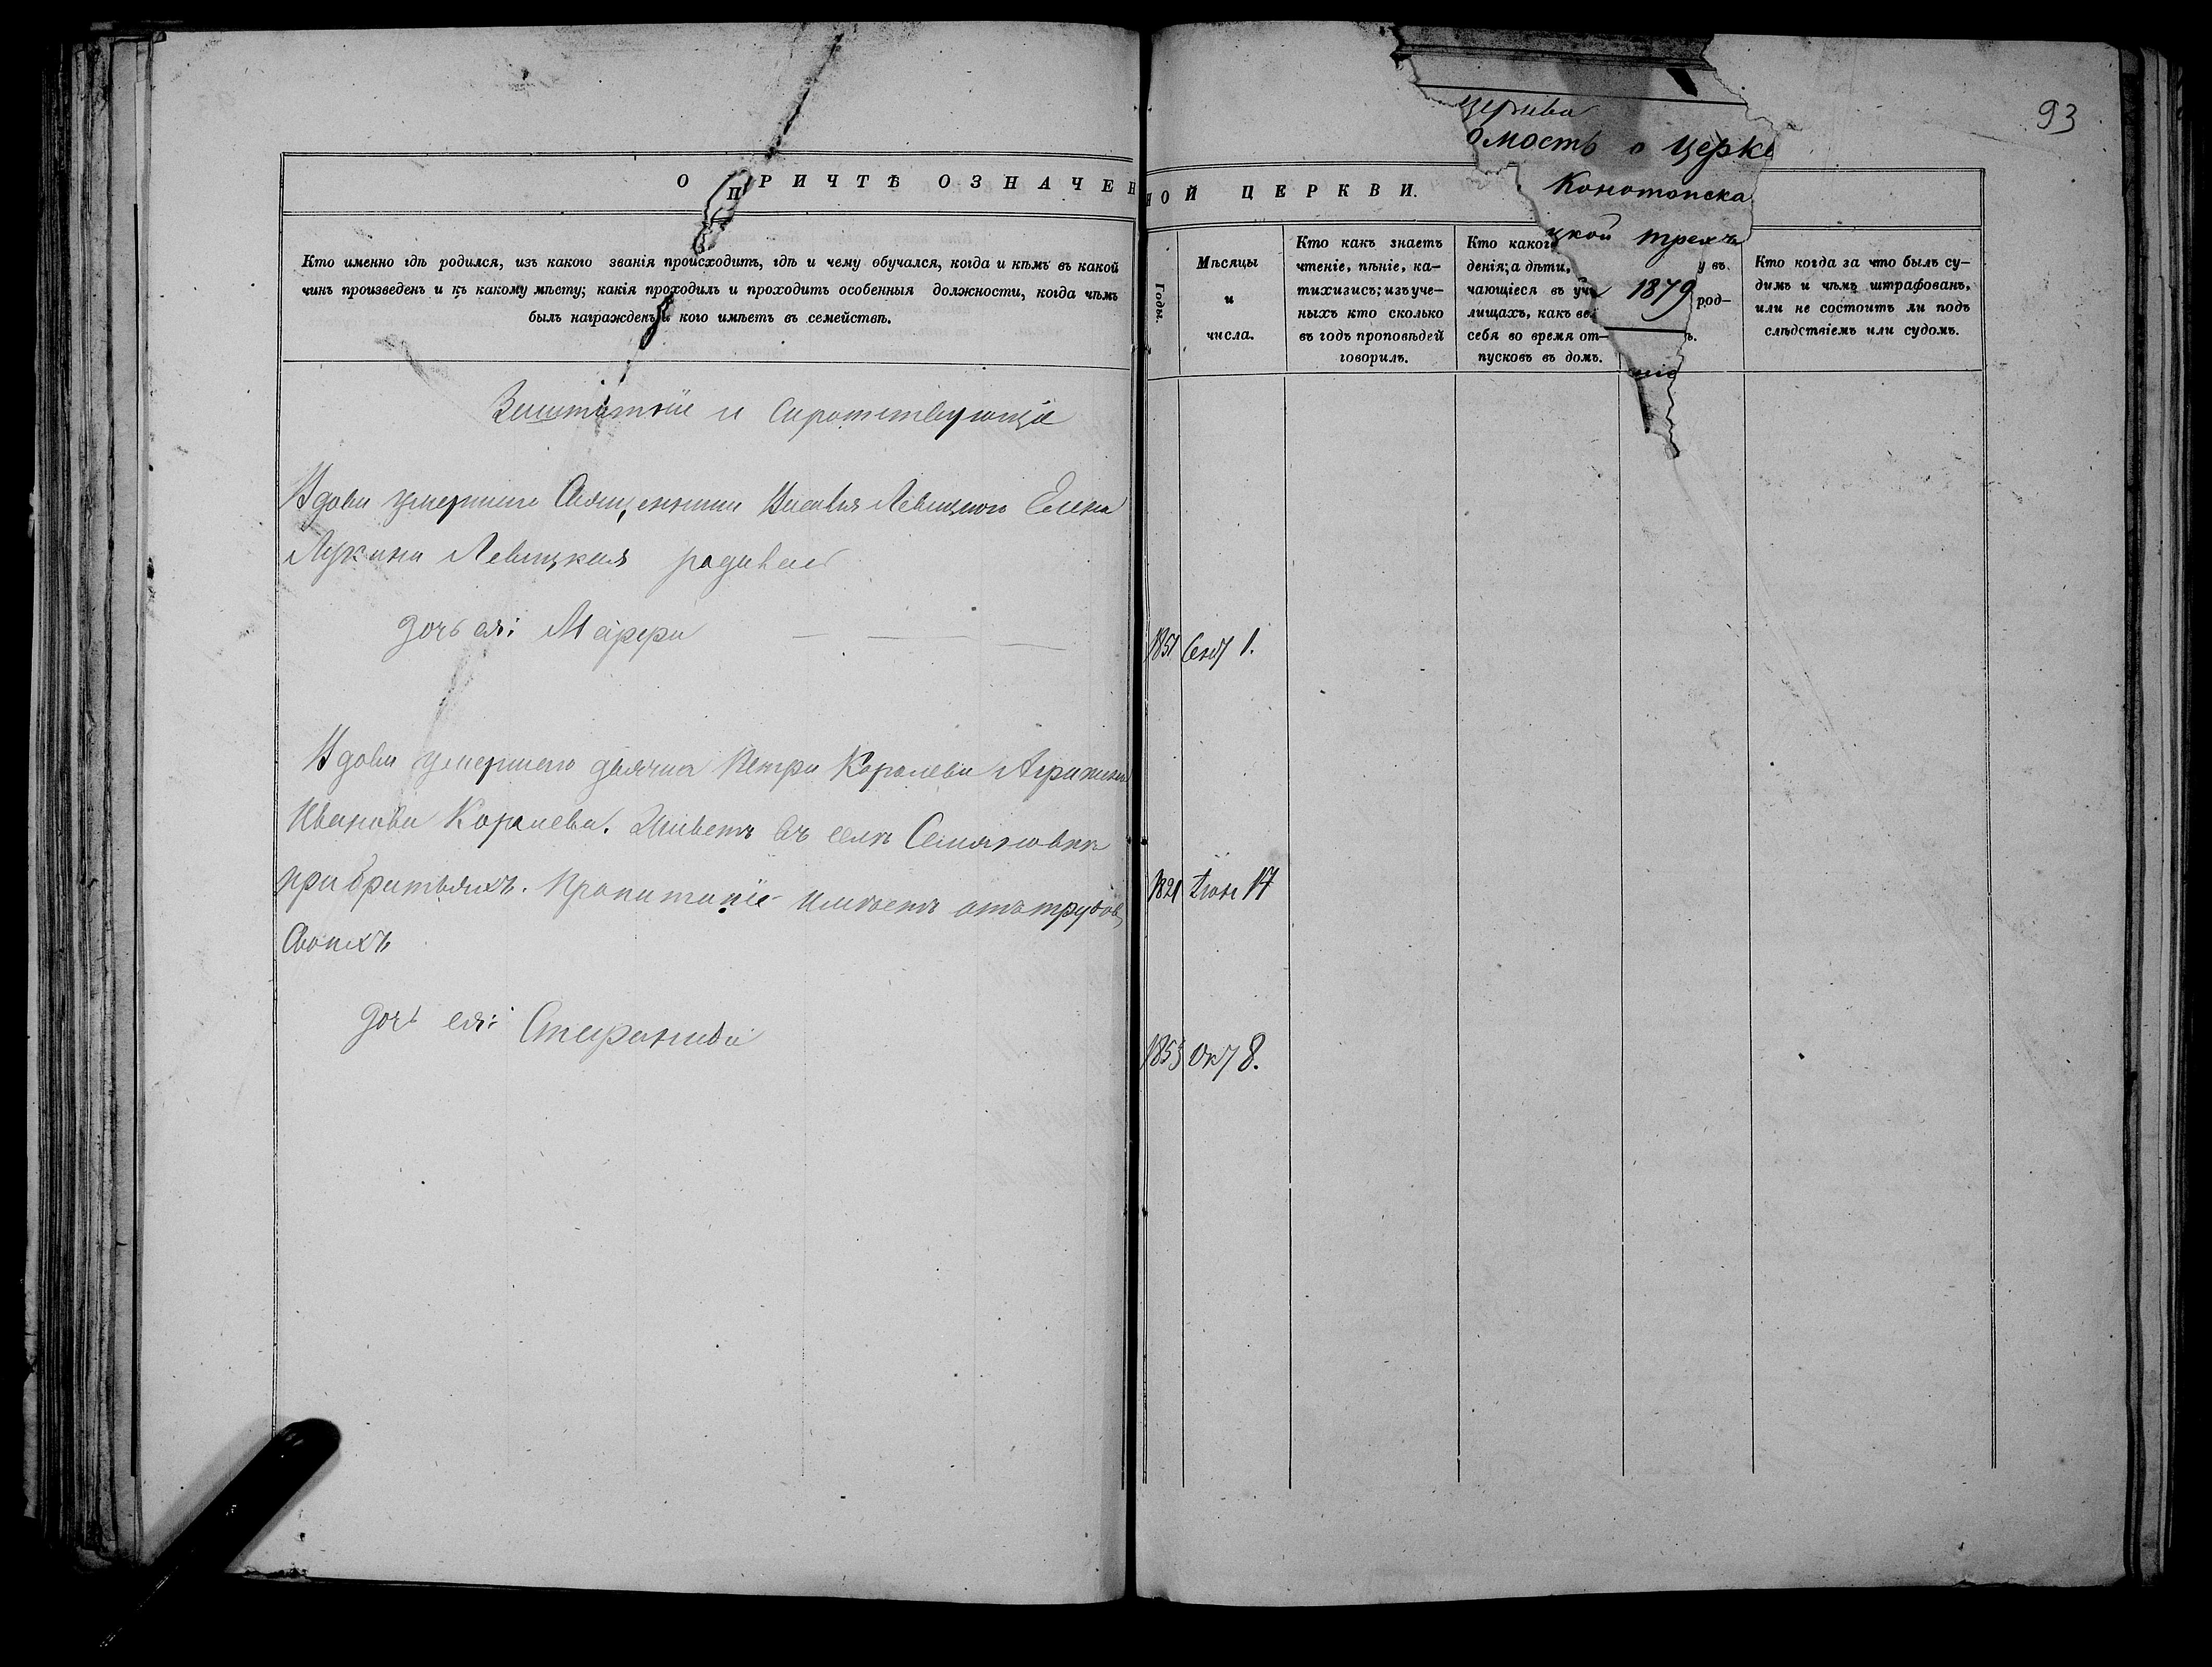 93
церква
омость о церкв
Конотопска
цкой трехъ
1879
О ПРИЧТѢ ОЗНАЧЕННОЙ ЦЕРКВИ.
Кто именно гдѣ родился, изъ какого званія происходитъ, гдѣ и чему обучался, когда и кѣмъ въ какой
чинъ произведенъ и къ какому мѣсту; какія проходилъ и проходитъ особенныя должности, когда чѣмъ
былъ награжденъ и кого имѣетъ въ семействѣ.
Годы.
Мѣсяцы
и
числа.
Кто какъ знаетъ
чтеніе, пѣніе, ка-
тихизисъ; изъ уче-
ныхъ кто сколько
въ годъ проповѣдей
говорилъ.
Кто какого
денія; а дѣти,
чающіеся въ учи
лищахъ, какъ ве
себя во время от-
пусковъ въ домъ.
у въ
род-
ъ.
Кто когда за что былъ су-
димъ и чѣмъ штрафованъ,
или не состоитъ ли подъ
слѣдствіемъ или судомъ.
Заштатныи и Сиротствующіе
Вдова умершаго Священника Василія Левицкаго Елена
Лукина Левицкая родилась
дочь ея: Марфа
1851 Сент 1.
Вдова умершаго дьячка Петра Королева Агрипина
Иванова Королева. Живетъ въ селѣ Семяновкѣ
при братьяхъ. Пропитаніе имѣетъ отъ трудовъ
Своихъ
1821 Іюн 17
дочь ея: Стефанида
1853 Окт 8.